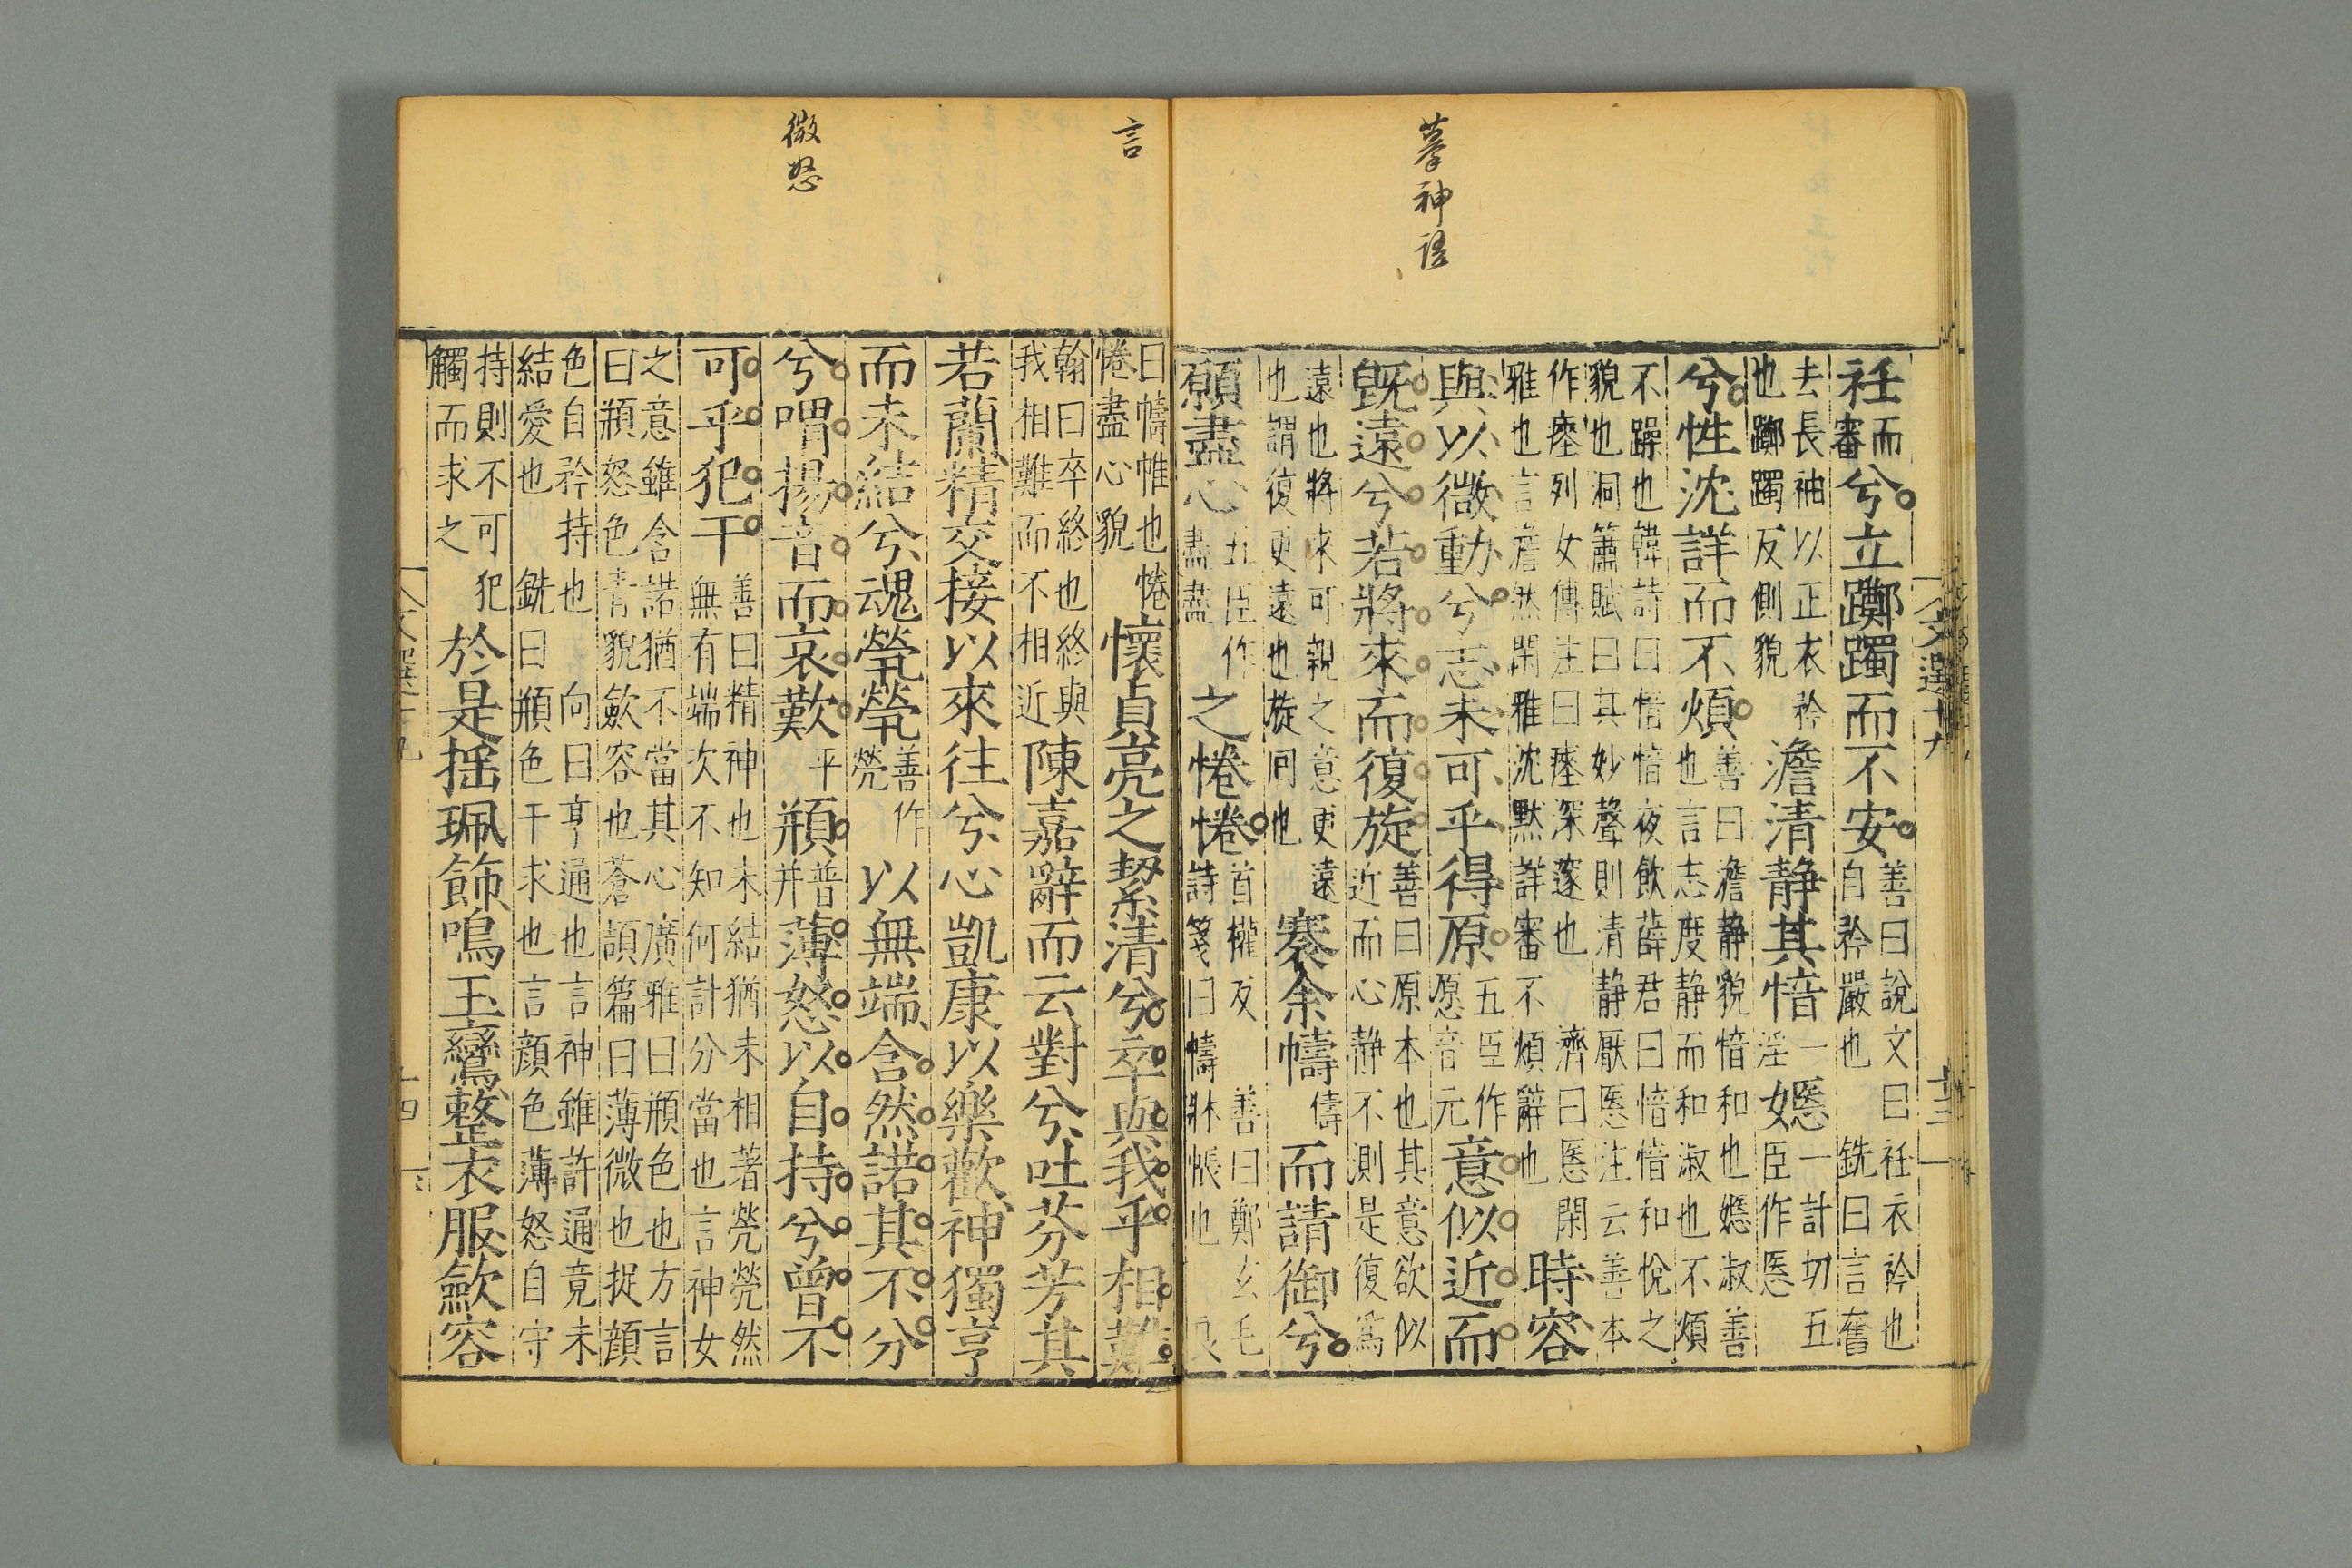 摹神語
衽而審兮立躑躅而不安善曰說文曰衽衣衿也自矜嚴也銑曰言奮
去長袖以正衣衿也躑躅反側貌澹清靜其愔淫一嫕一計切五臣作㥷
兮性沈詳而不煩善曰澹靜貌愔和也嫕淑善也言志度靜而和淑也不煩
不躁也韓詩曰愔愔夜飲薛君曰愔愔和悅之貌也洞簫賦曰其妙聲則清靜厭㥷注云善本
作瘞列女傳注曰瘞深邃也濟曰㥷閑雅也言澹然閑雅沈默詳審不煩辭也時容
與以微動兮志未可乎得原五臣作愿音元意似近而
既遠兮若將來而復旋善曰原本也其意欲似近而心靜不測是復爲
遠也將來可親之意更遠也謂復更遠也旋回也褰余幬儔而請御兮
願盡心五臣作盡藎之惓惓首權反善曰鄭玄毛詩箋曰幬牀帳也良
言
微怒
曰幬帷也惓惓盡心貌懷貞亮之絜清兮卒與我乎相難
翰曰卒終也終與我相難而不相近陳嘉辭而云對兮吐芬芳其
若蘭精交接以來往兮心凱康以樂歡神獨亨
而未結兮魂煢煢善作焭以無端含然諾其不分
兮喟揚音而哀歎平頩普并薄怒以自持兮曾不
可乎犯干善曰精神也未結猶未相著焭焭然無有端次不知何計分當也言神女
之意雖含諾猶不當其心廣雅曰頩色也方言曰頩怒色青貌歛容也蒼頡篇曰薄微也捉顔
色自矜持也向曰亨通也言神雖許通竟未結愛也銑曰頩色干求也言顔色薄怒自守
持則不可犯觸而求之於是搖珮飾鳴玉鸞整衣服歛容
文選十九
十三
十四